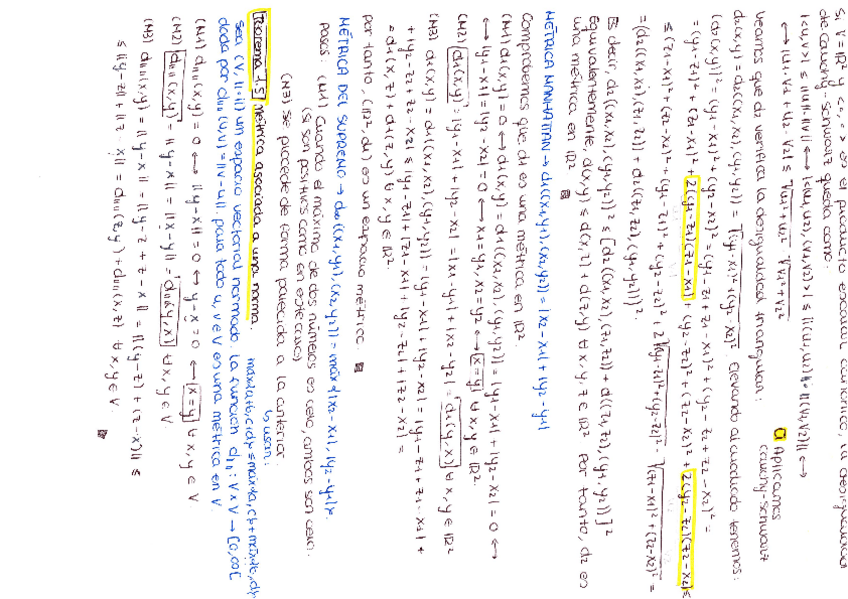 Si V = ℝ² y <·,·> es el producto escalar canónico, la desigualdad
de Cauchy-Schwarz queda como:
|<u,v>| ≤ ||u||·||v|| ⟷ |<(u1,u2),(v1,v2)>| ≤ ||(u1,u2)||·||(v1,v2)|| ⟷
⟷ |u1·v1 + u2·v2| ≤ √(u1² + u2²) · √(v1² + v2²)
Aplicamos
Cauchy-Schwarz
Veamos que d2 verifica la desigualdad triangular:
d2(x,y) = d2((x1,x2),(y1,y2)) = √((y1-x1)² + (y2-x2)²). Elevando al cuadrado tenemos:
(d2(x,y))² = (y1-x1)² + (y2-x2)² = (y1-z1+z1-x1)² + (y2-z2+z2-x2)² =
= (y1-z1)² + (z1-x1)² + 2(y1-z1)(z1-x1) + (y2-z2)² + (z2-x2)² + 2(y2-z2)(z2-x2) ≤
≤ (z1-x1)² + (z2-x2)² + (y1-z1)² + (y2-z2)² + 2√((y1-z1)²+(y2-z2)²) · √((z1-x1)²+(z2-x2)²) =
= (d2((x1,x2),(z1,z2)) + d2((z1,z2),(y1,y2)))².
Es decir, d2((x1,x2),(y1,y2))² ≤ [d2((x1,x2),(z1,z2)) + d((z1,z2),(y1,y2))]²
Equivalentemente, d(x,y) ≤ d(x,z) + d(z,y) ∀x,y,z ∈ ℝ². Por tanto, d2 es
una métrica en ℝ²
MÉTRICA MANHATTAN → d1((x1,y1),(x2,y2)) = |x2-x1| + |y2-y1|
Comprobemos que d1 es una métrica en ℝ².
(M1) d1(x,y) = 0 ⟷ d1(x,y) = d1((x1,x2),(y1,y2)) = |y1-x1| + |y2-x2| = 0 ⟷
⟷ |y1-x1| = |y2-x2| = 0 ⟷ x1=y1, x2=y2 ⟷ x=y ∀x,y ∈ ℝ².
(M2) d1(x,y) = |y1-x1| + |y2-x2| = |x1-y1| + |x2-y2| = d1(y,x) ∀x,y ∈ ℝ²
(M3) d1(x,y) = d1((x1,x2),(y1,y2)) = |y1-x1| + |y2-x2| = |y1-z1+z1-x1| +
+ |y2-z2+z2-x2| ≤ |y1-z1| + |z1-x1| + |y2-z2| + |z2-x2| =
= d1(x,z) + d1(z,y) ∀x,y ∈ ℝ².
Por tanto, (ℝ²,d1) es un espacio métrico.
MÉTRICA DEL SUPREMO → d∞((x1,y1),(x2,y2)) = máx{|x2-x1|,|y2-y1|}.
Pasos: (M1) Cuando el máximo de dos números es cero, ambos son cero.
(si son positivos como en este caso)
↳ usar:
(M3) se procede de forma parecida a la anterior.
máx{a+b,c+d} ≤ máx{a,c} + máx{b,d}
Teorema 1.5 Métrica asociada a una norma.
Sea (V,||·||) un espacio vectorial normado. La función d||·||: V×V → [0,∞[
dada por d||·||(u,v) = ||v-u|| para todo u,v ∈ V es una métrica en V
(M1) d||·||(x,y) = 0 ⟷ ||y-x|| = 0 ⟷ y-x = 0 ⟷ x=y ∀x,y ∈ V
(M2) d||·||(x,y) = ||y-x|| = ||x-y|| = d||·||(y,x) ∀x,y ∈ V
(M3) d||·||(x,y) = ||y-x|| = ||y-z+z-x|| = ||(y-z)+(z-x)|| ≤
≤ ||y-z|| + ||z-x|| = d||·||(z,y) + d||·||(x,z) ∀x,y ∈ V.